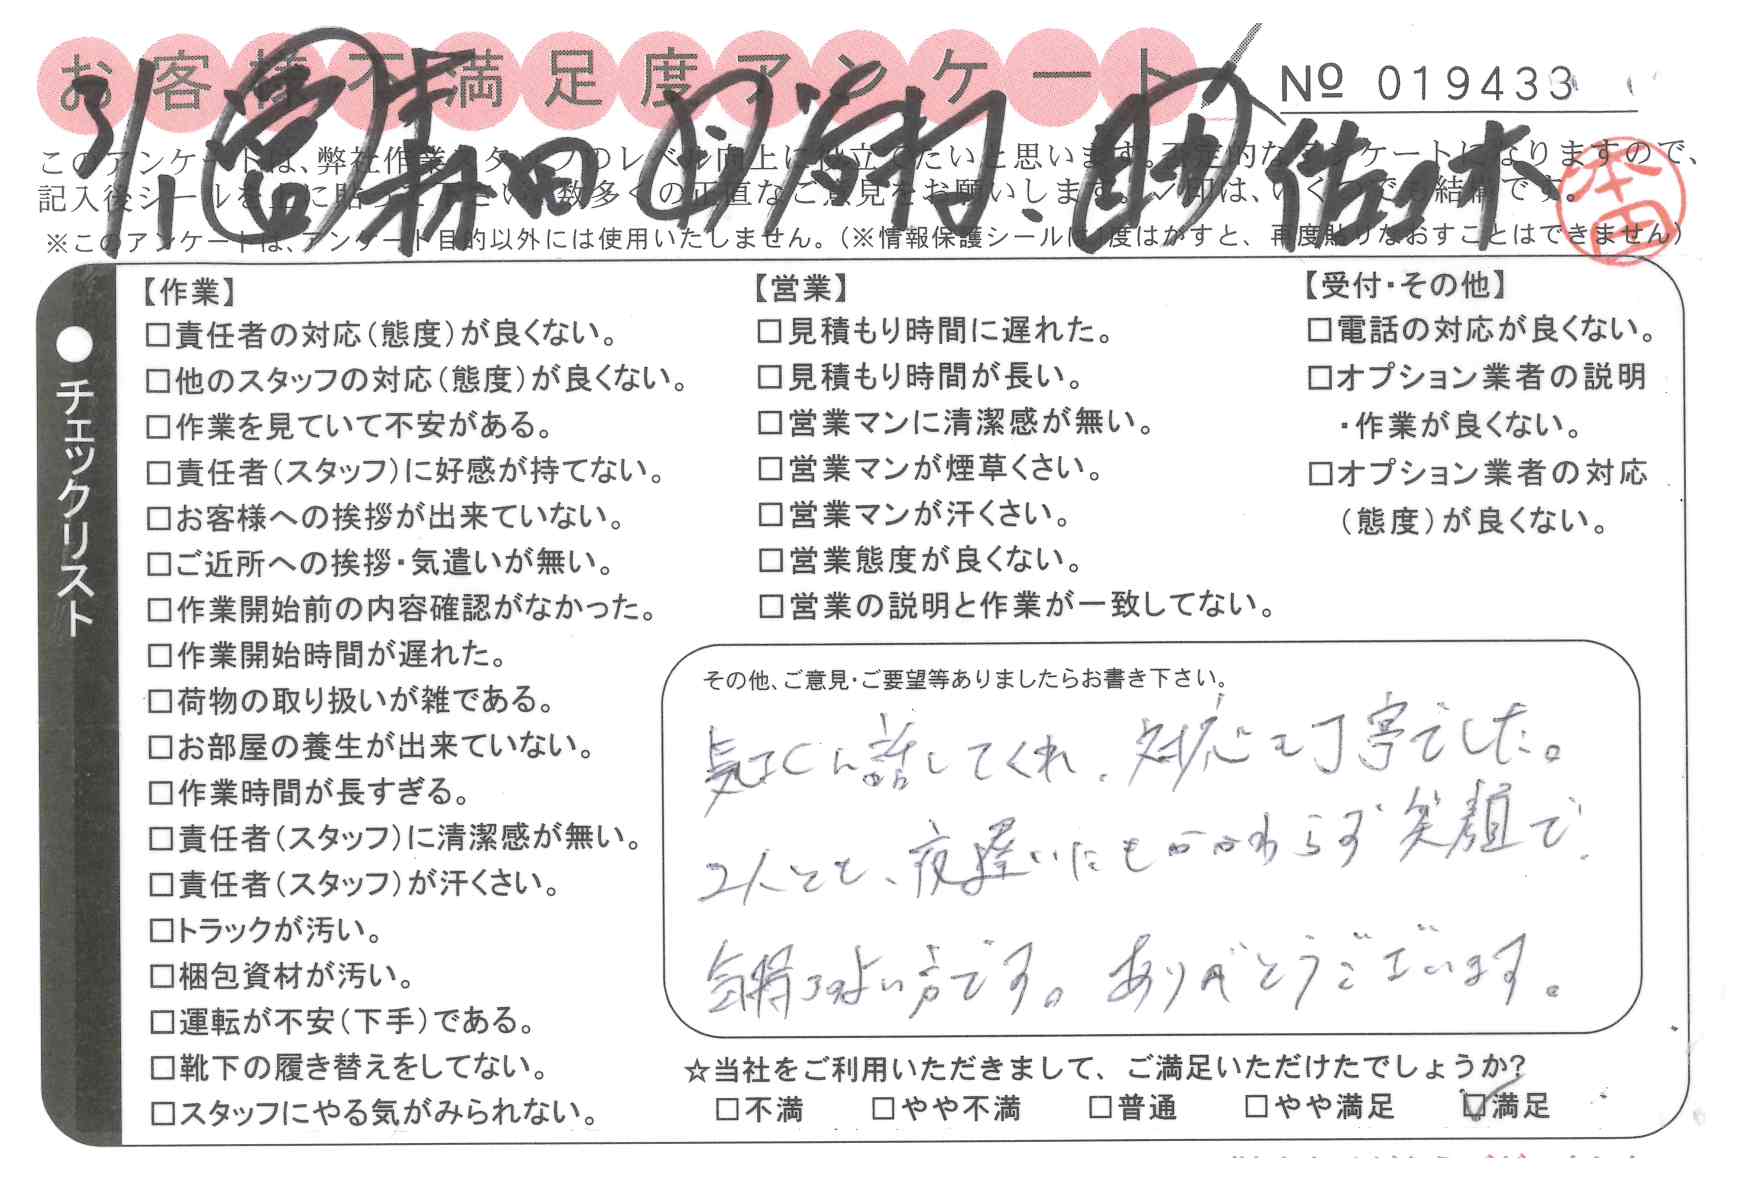 お客様不満足度アンケート
№ 019433
このアンケートは、弊社作業スタッフのレベル向上に役立てたいと思います。否定的なアンケートになりますので、
記入後シールを上に貼って下さい。数多くの正直なご意見をお願いします。レ印は、いくつでも結構です。
※このアンケートは、アンケート目的以外には使用いたしません。（※情報保護シールは1度はがすと、再度貼りなおすことはできません）
3/1 営 森田 助 佐々木
本田
●チェックリスト
【作業】
□責任者の対応（態度）が良くない。
□他のスタッフの対応（態度）が良くない。
□作業を見ていて不安がある。
□責任者（スタッフ）に好感が持てない。
□お客様への挨拶が出来ていない。
□ご近所への挨拶・気遣いが無い。
□作業開始前の内容確認がなかった。
□作業開始時間が遅れた。
□荷物の取り扱いが雑である。
□お部屋の養生が出来ていない。
□作業時間が長すぎる。
□責任者（スタッフ）に清潔感が無い。
□責任者（スタッフ）が汗くさい。
□トラックが汚い。
□梱包資材が汚い。
□運転が不安（下手）である。
□靴下の履き替えをしてない。
□スタッフにやる気がみられない。
【営業】
□見積もり時間に遅れた。
□見積もり時間が長い。
□営業マンに清潔感が無い。
□営業マンが煙草くさい。
□営業マンが汗くさい。
□営業態度が良くない。
□営業の説明と作業が一致してない。
【受付・その他】
□電話の対応が良くない。
□オプション業者の説明
・作業が良くない。
□オプション業者の対応
（態度）が良くない。
その他、ご意見・ご要望等ありましたらお書き下さい。
気さくに話してくれ、対応も丁寧でした。
2人とも、夜遅いにもかかわらず笑顔で、
気持ちのよい方です。ありがとうございます。
☆当社をご利用いただきまして、ご満足いただけたでしょうか？
□不満 □やや不満 □普通 □やや満足 ☑満足